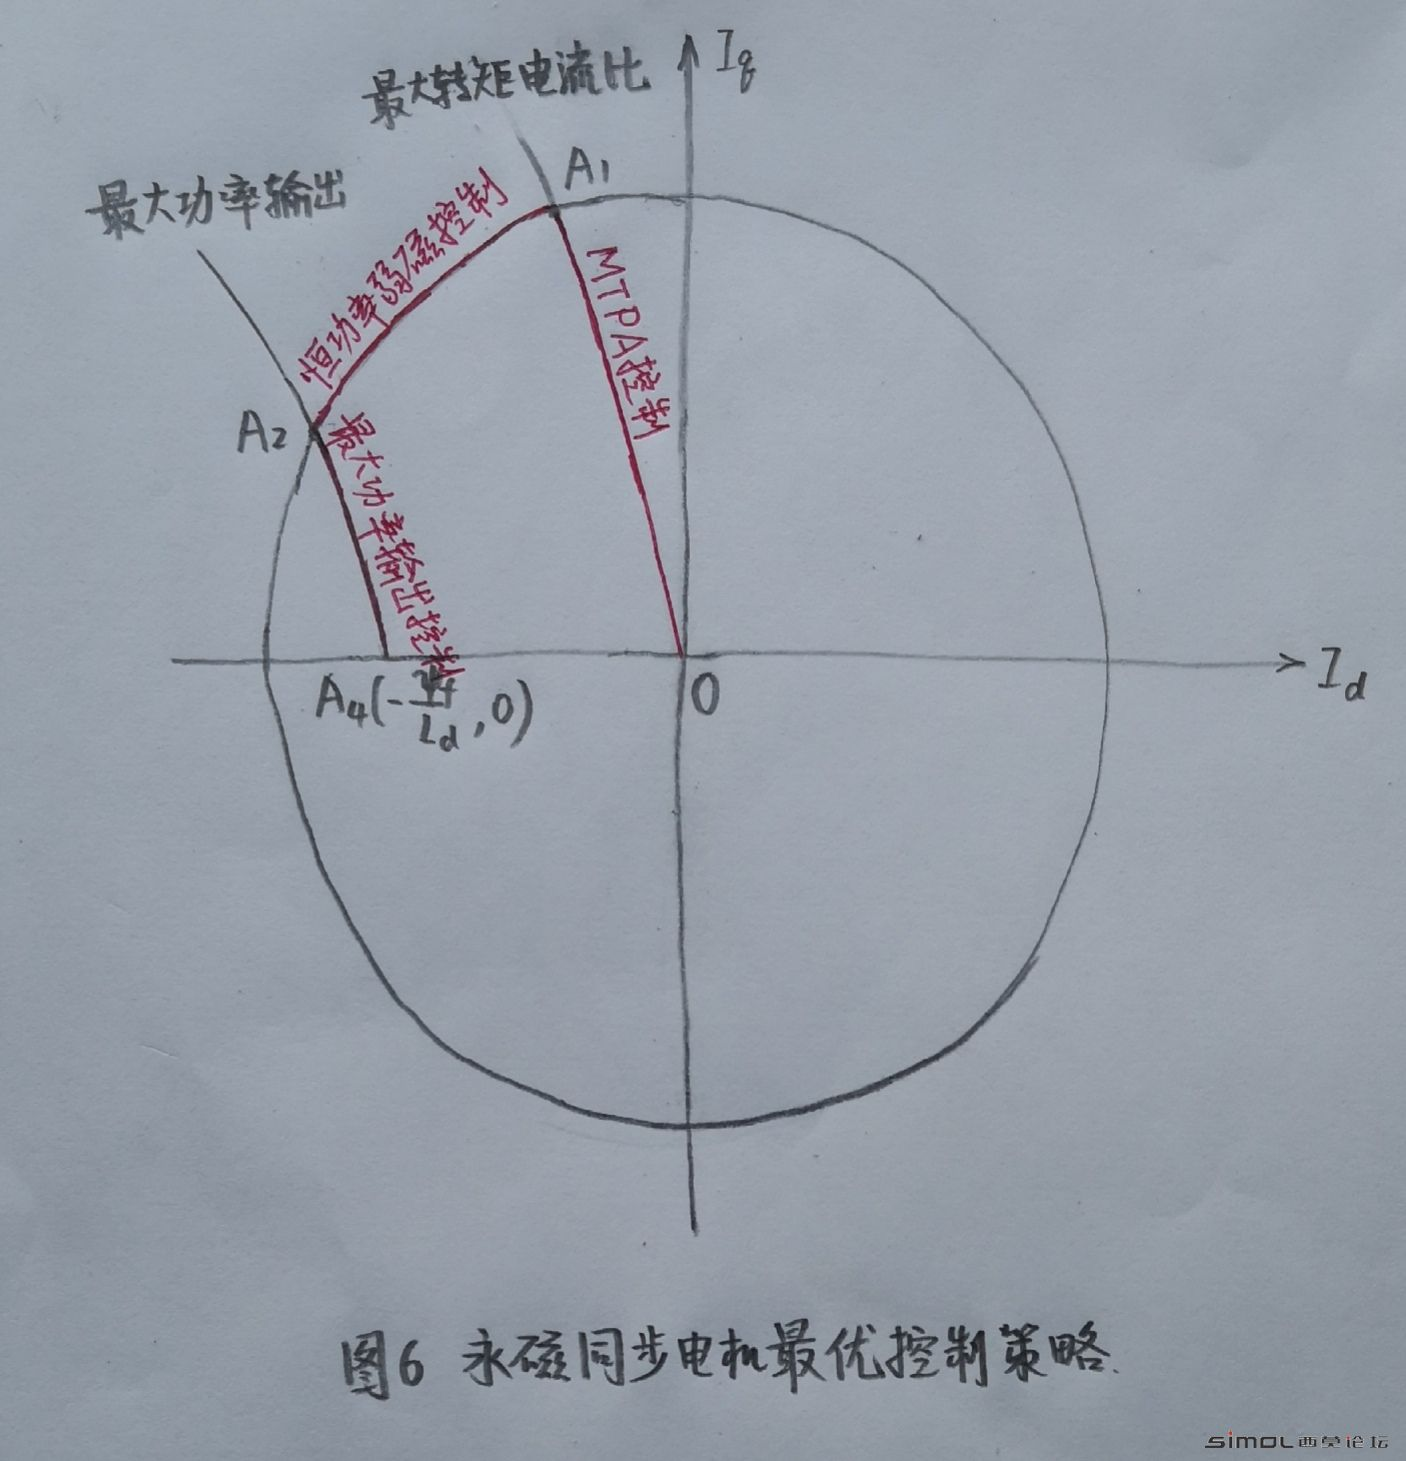 I_q
最大转矩电流比
A₁
最大功率输出
恒功率弱磁控制
MTPA控制
A₂
最大功率输出控制
I_d
O
A₄(-Ψf/L_d,0)
图6 永磁同步电机最优控制策略.
simol西莫论坛